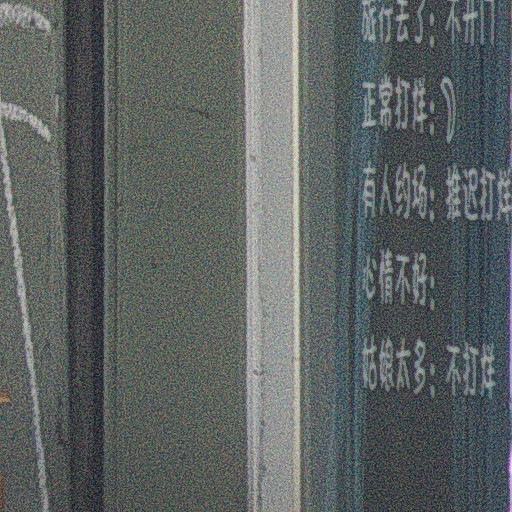 旅行去了：不开门
正常打烊：
有人约场：推迟打烊
心情不好：
姑娘太多：不打烊